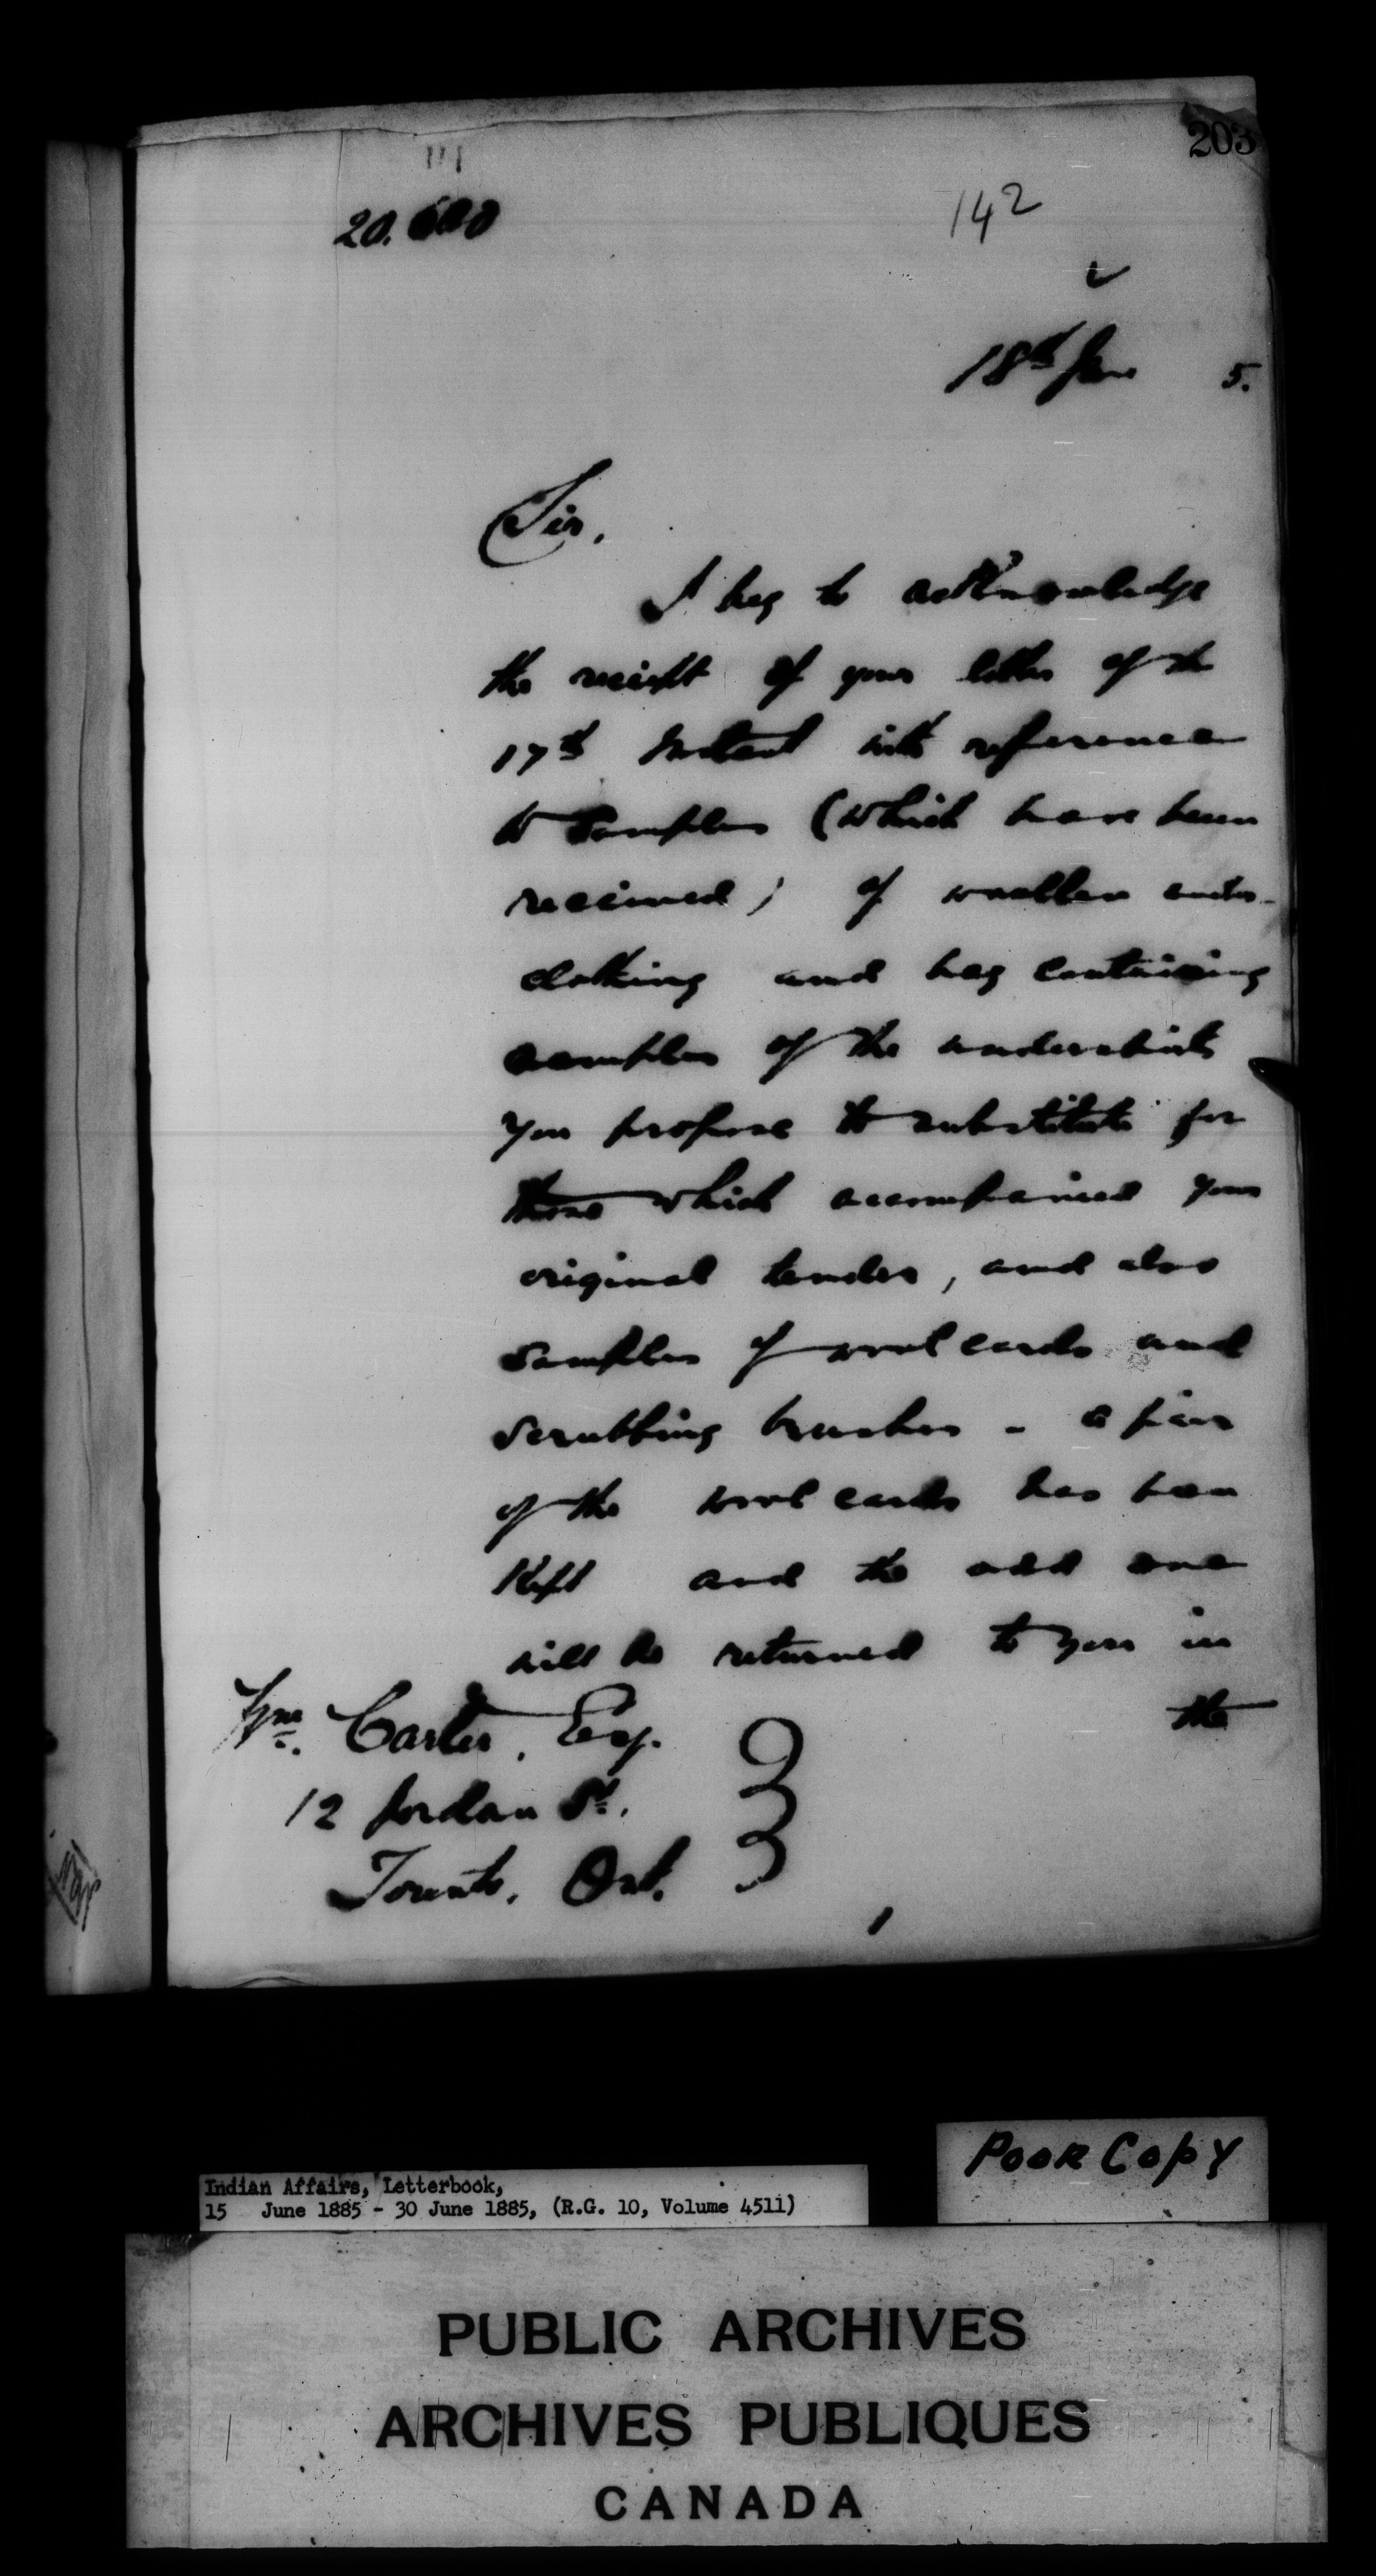 203
142
18th June 5.
Sir,
I beg to acknowledge
the receipt of your letter of the
17th Instant with reference
to samples (which have been
received) of woollen under-
clothing and bag containing
samples of the undershirts
you propose to substitute for
those which accompanied your
original tender, and also
samples of wool cards and
scrubbing brushes - a pair
of the wool cards has been
Kept and the odd one
will be returned to you in
the
Wm. Carter, Esq.
12 Jordan St.
Toronto, Ont.
Poor Copy
Indian Affairs, Letterbook,
15 June 1885 - 30 June 1885, (R.G. 10, Volume 4511)
PUBLIC ARCHIVES
ARCHIVES PUBLIQUES
CANADA